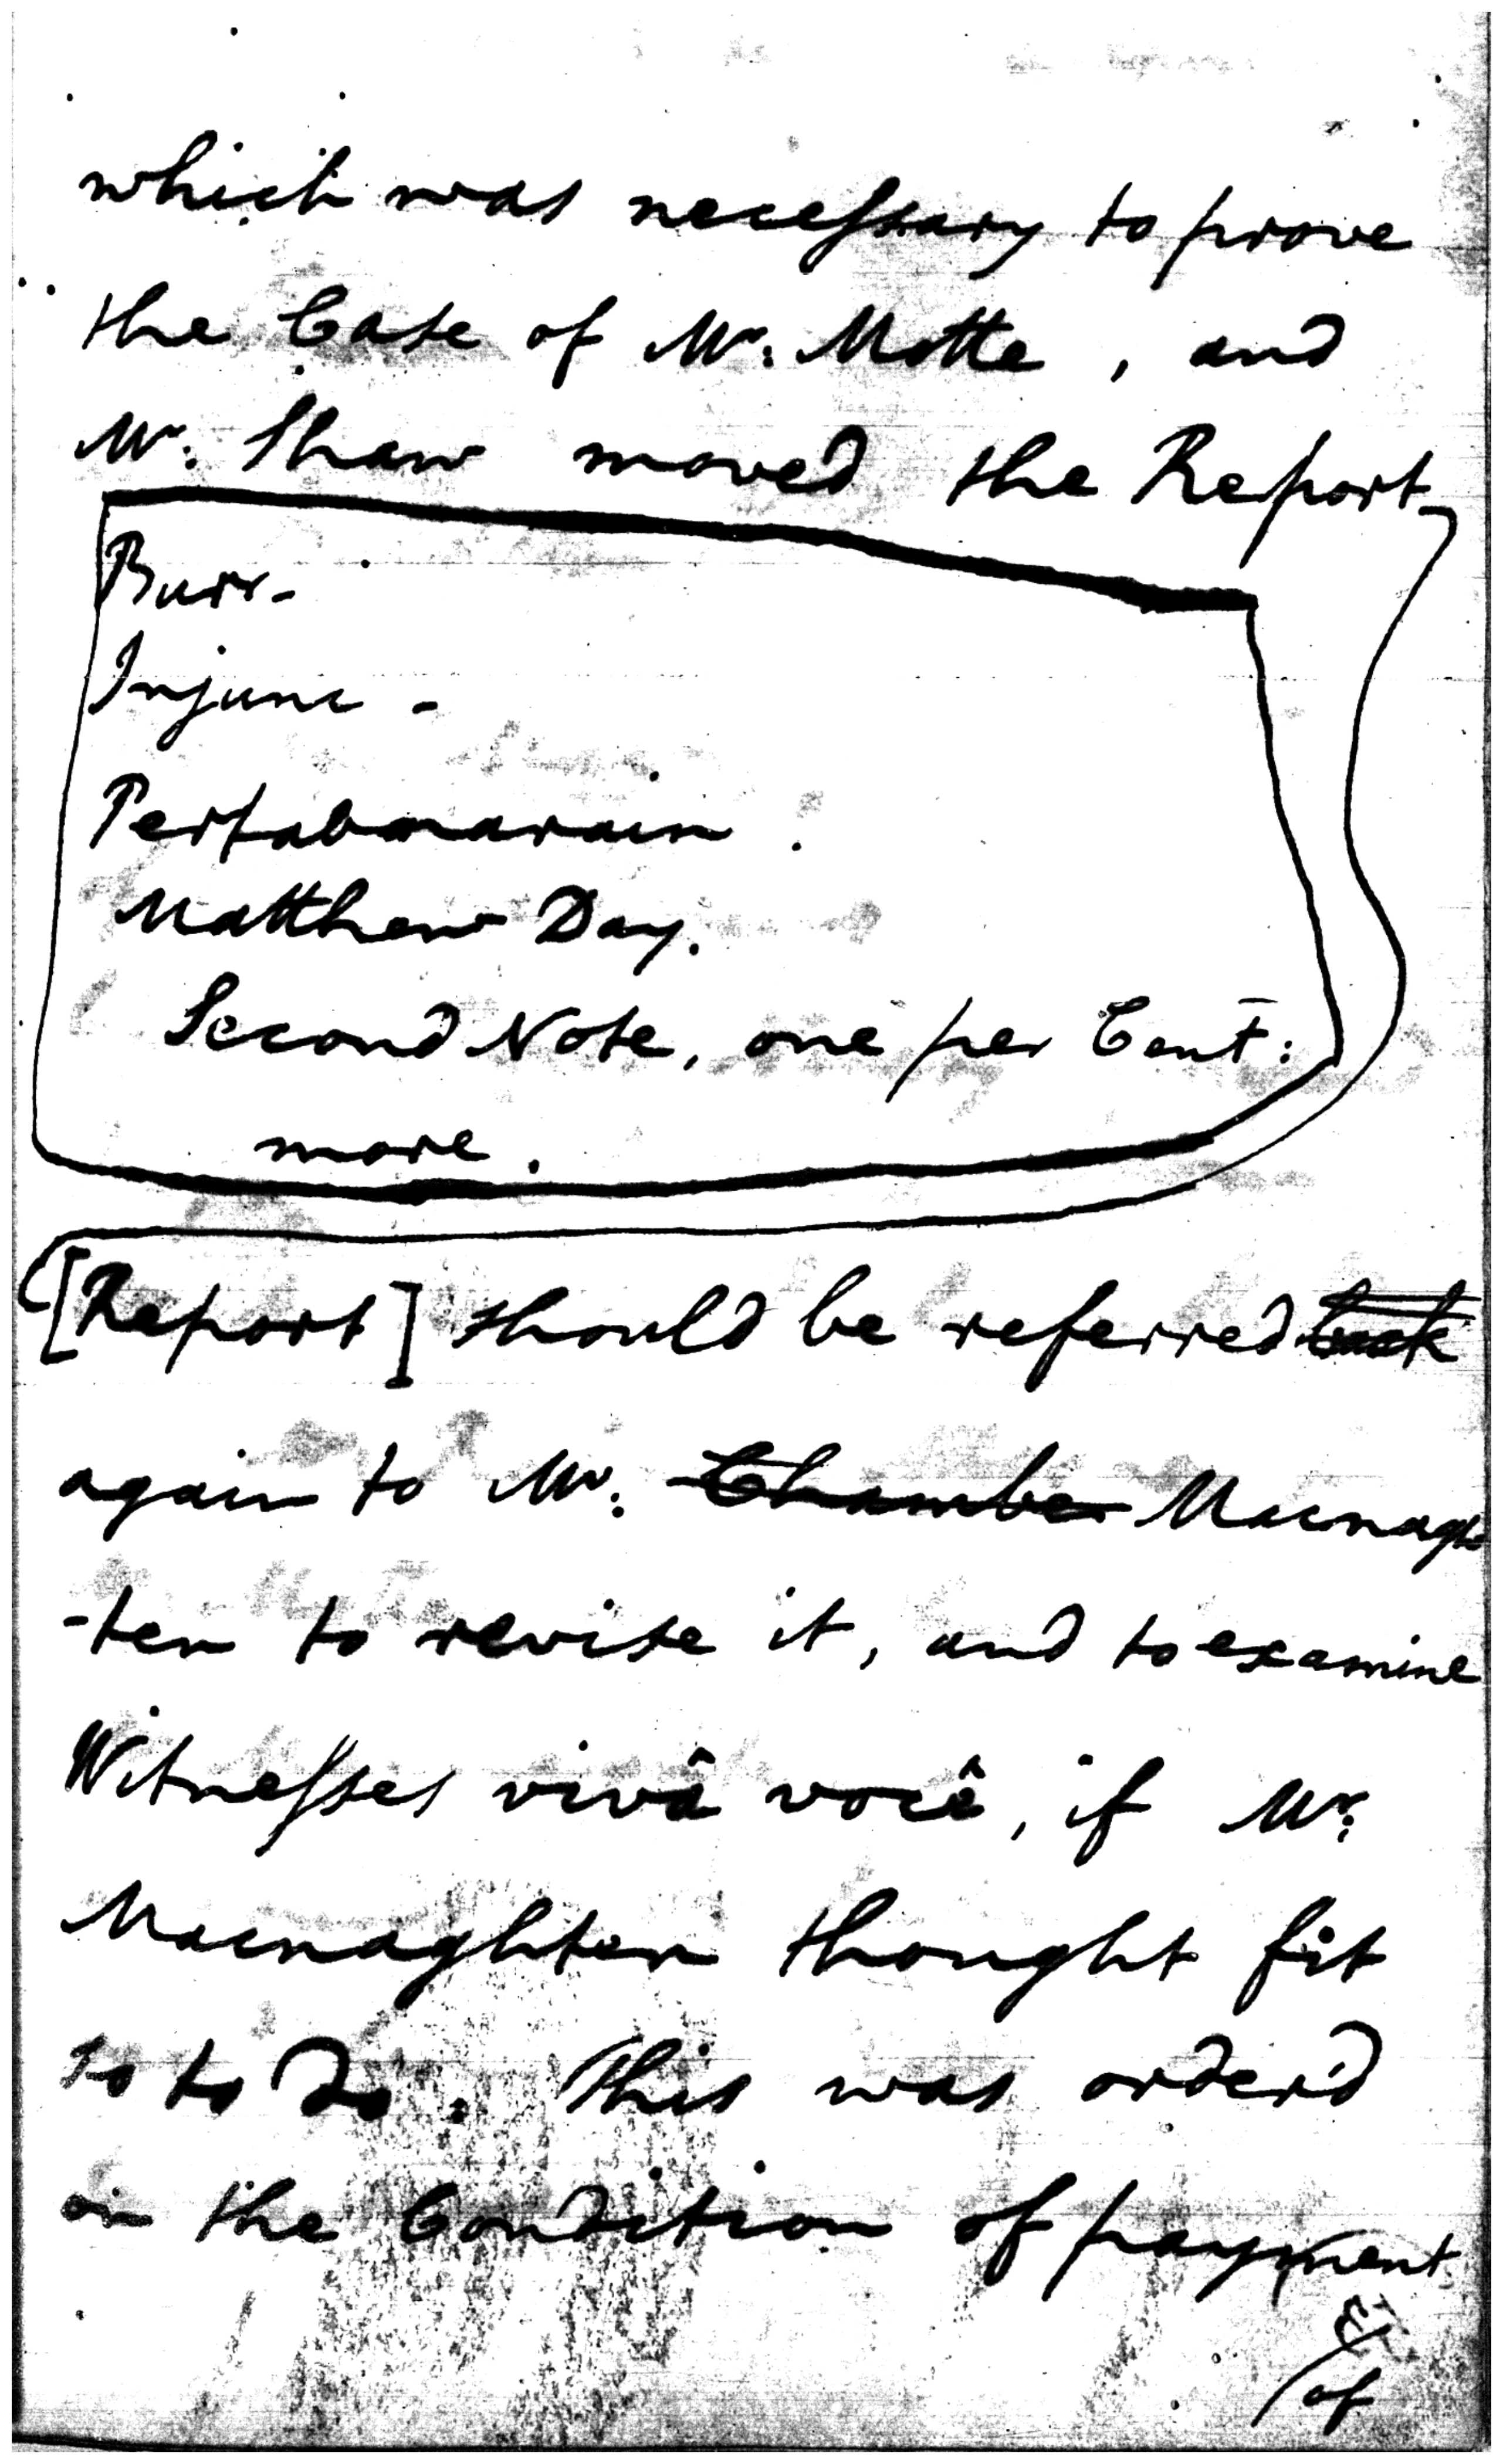 which was necessary to prove
the Case of Mr. Motte, and
Mr. Shaw moved the Report
Burr-
Injunc-
Pertabnarain.
Matthew Day.
Second Note, one per Cent:
more.
[Report] should be referred back
again to Mr. Chamber Macnagh
-ten to revise it, and to examine
Witnesses vivâ você, if Mr.
Macnaghten thought fit
so to do. This was order'd
on the Condition of payment
of